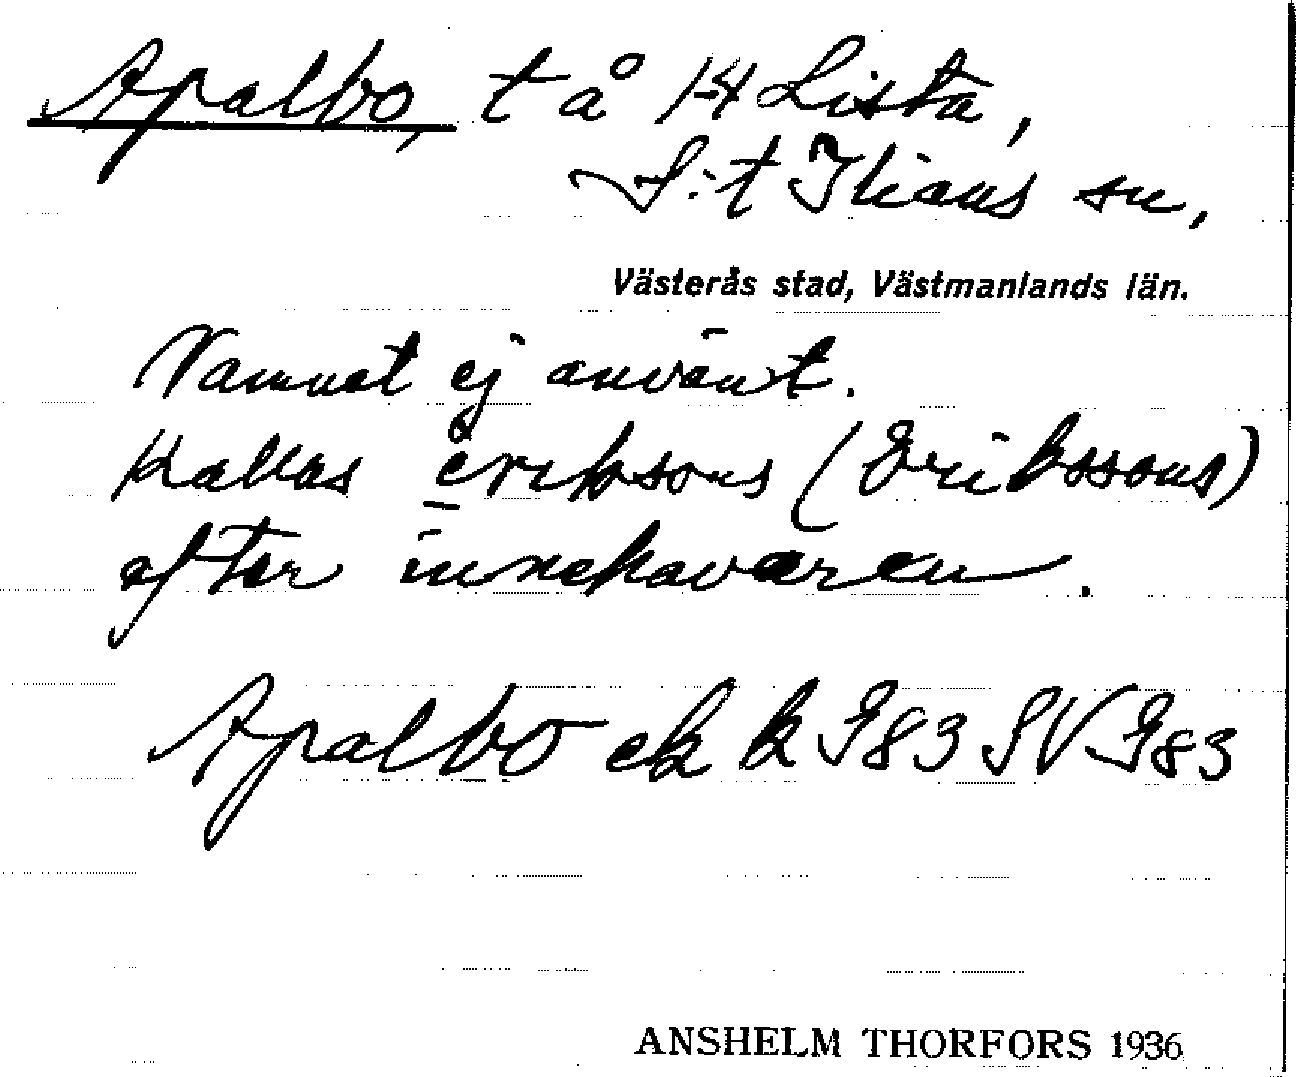 Apalbo, t å 1-4 Lista,
S:t Ilians sn,
Västerås stad, Västmanlands län.
Namnet ej använt.
Kallas eriksons (Erikssons)
efter innehavaren.
Apalbo ek k I83 SV I83
ANSHELM THORFORS 1936